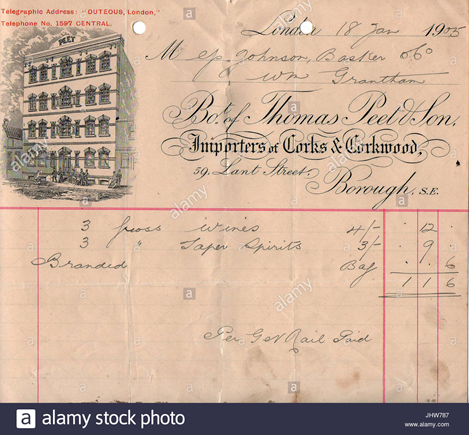 Telegraphic Address: "DUTEOUS, London,"
Telephone No. 1597 CENTRAL.
London 18 Jan 1905
PEET
M ep. Johnson, Basker & Co
Wm Grantham
Bo.t of Thomas Peet & Son,
Importers of Corks & Corkwood,
59, Lant Street,
Borough, S.E.
3 gross wines 4/- . 12 .
3 " Taper Spirits 3/- . 9 .
Branded Bag . . 6
1 1 6
Per G N Rail Paid
alamy
a alamy stock photo
JHW787
www.alamy.com